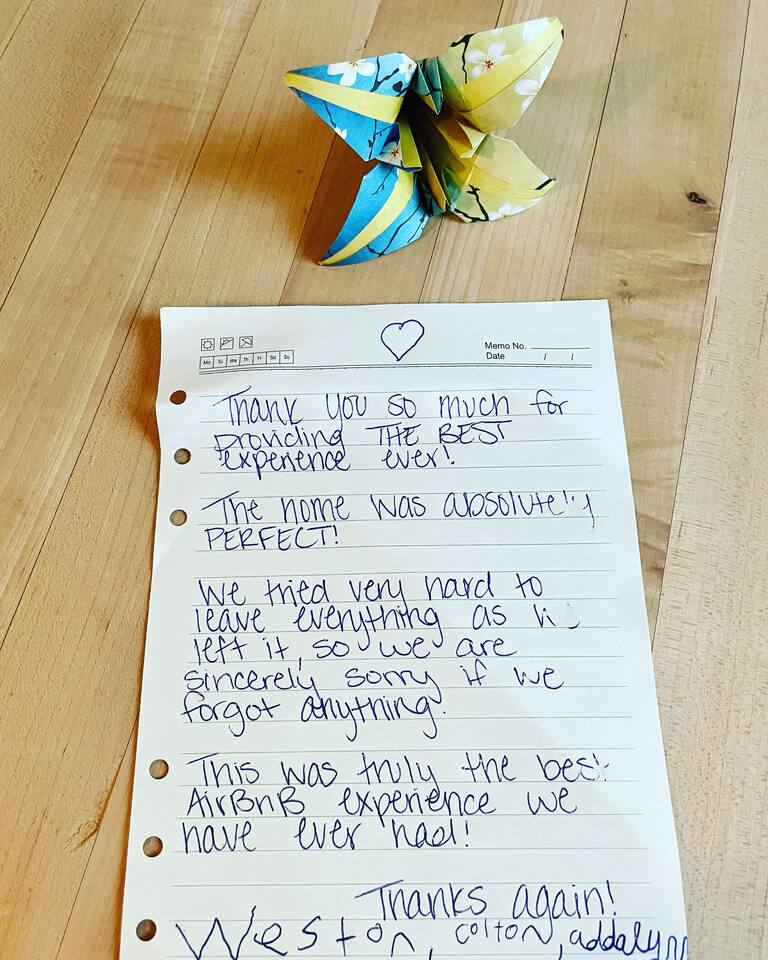 Memo No.
Mo Tu We Th Fr Sa Su
Date / /
Thank you so much for
providing THE BEST
experience ever!
The home was absolutely
PERFECT!
We tried very hard to
leave everything as
left it, so we are
sincerely sorry if we
forgot anything.
This was truly the best
AirBnB experience we
have ever had!
Thanks again!
Weston, colton, addalynn